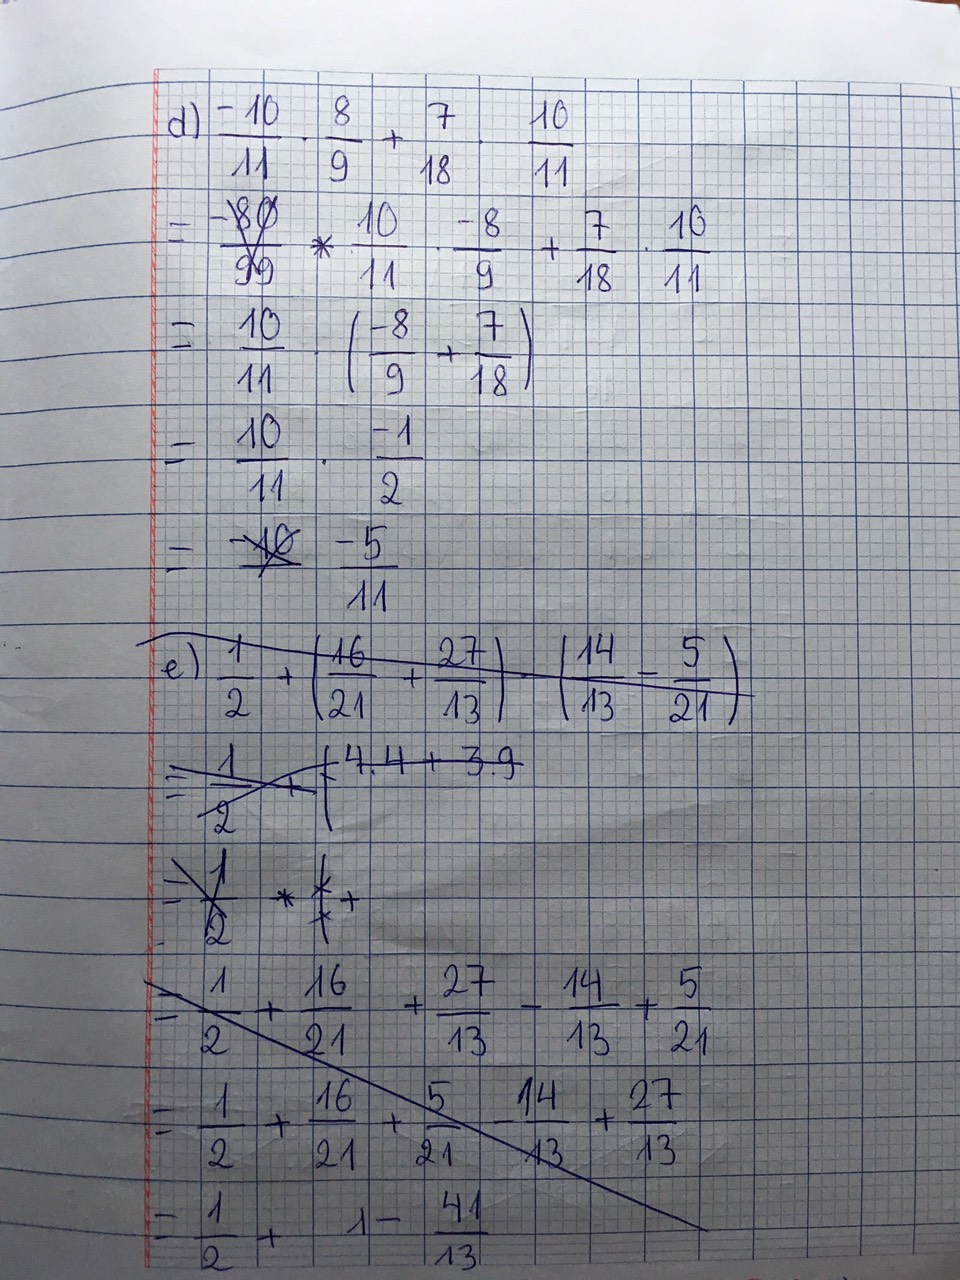 d) -10/11 · 8/9 + 7/18 · 10/11
= -80/99 * 10/11 · -8/9 + 7/18 · 10/11
= 10/11 · (-8/9 + 7/18)
= 10/11 · -1/2
= -10 -5/11
e) 1/2 + (16/21 + 27/13) - (14/13 - 5/21)
= 1/2 + (4.4 + 3.9
= 1/2 * ( +
= 1/2 + 16/21 + 27/13 - 14/13 + 5/21
= 1/2 + 16/21 + 5/21 - 14/13 + 27/13
= 1/2 + 1 - 41/13